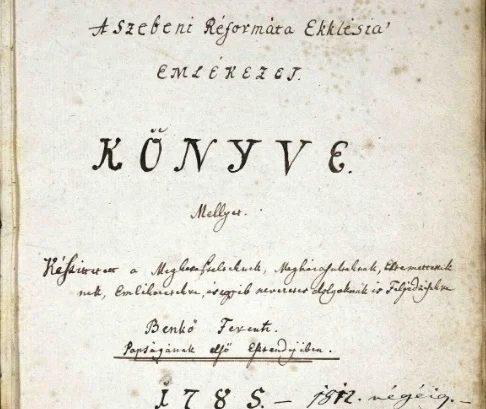 A Szebeni Réformáta Ekklésia'
EMLÉKEZET.
KÖNYVE.
Mellyet.
Készittetett a Megkereszteltteknek, Megházasultaknak, Eltemettettek
nek, Emlékezetekre, és egyéb nevezetes dolgoknak is Feljedzésekre
Benkő Ferentz.
Papságának elsö Esztendejében.
1785. – 1812. végéig. –